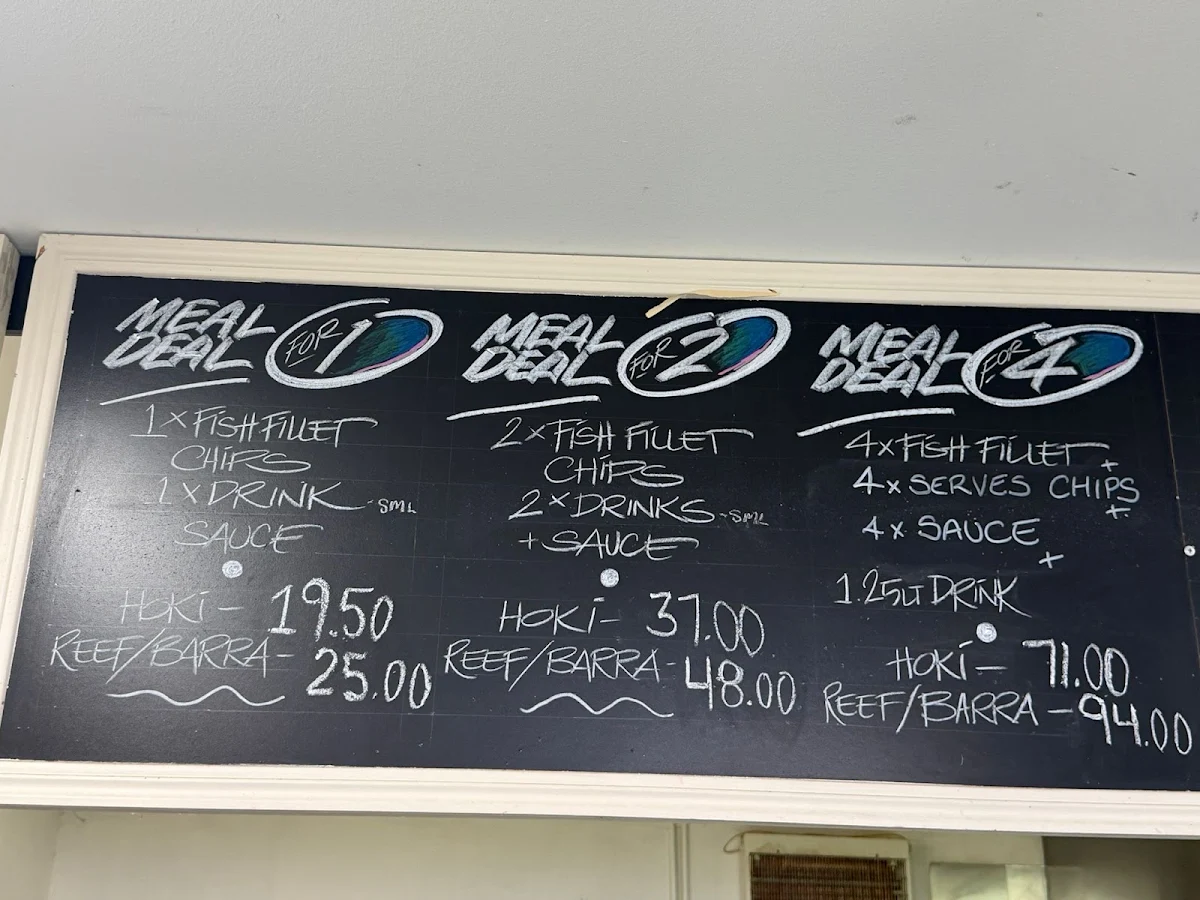 MEAL
DEAL FOR 1
1 x FiSH FiLLET
CHiPS
1 x DRiNK - SML
SAUCE
HOKi - 19.50
REEF/BARRA - 25.00
MEAL
DEAL FOR 2
2 x FiSH FiLLET
CHiPS
2 x DRiNKS - SML
+ SAUCE
HOKi - 37.00
REEF/BARRA - 48.00
MEAL
DEAL FOR 4
4 x FiSH FiLLET +
4 x SERVES CHIPS
+
4 x SAUCE
+
1.25LT DRiNK
HOKi - 71.00
REEF/BARRA - 94.00